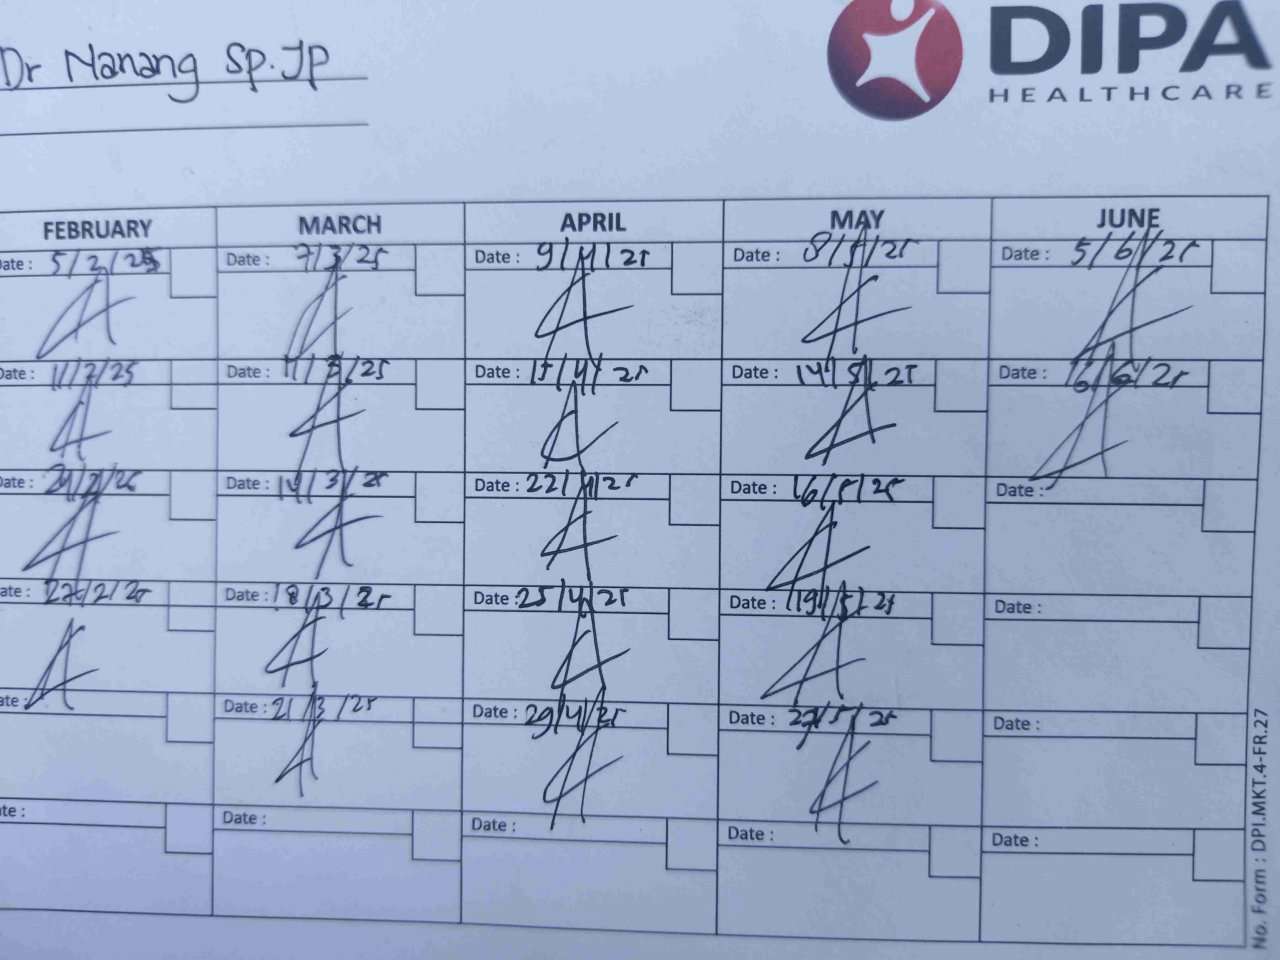 Dr Nanang Sp.JP
DIPA
HEALTHCARE
FEBRUARY MARCH APRIL MAY JUNE
ate : 5/2/25 Date : 7/3/25 Date : 9/4/25 Date : 8/5/25 Date : 5/6/25
Date : 11/2/25 Date : 11/3/25 Date : 15/4/25 Date : 14/5/25 Date : 6/6/25
Date : Date : 14/3/25 Date : 22/4/25 Date : 16/5/25 Date :
ate : 27/2/25 Date : 18/3/25 Date : 25/4/25 Date : 19/5/25 Date :
ate : Date : 21/3/25 Date : 29/4/25 Date : 27/5/25 Date :
te : Date : Date : Date : Date :
No. Form : DPI.MKT.4-FR.27